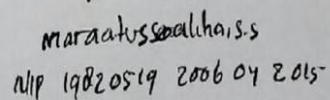 maraatussoaliha, s.s
NIP 19820519 2006 04 2015